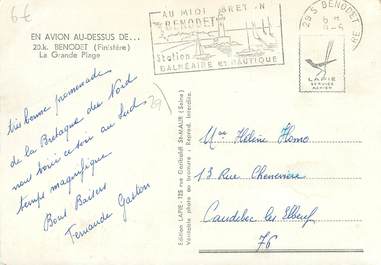 6€
EN AVION AU-DESSUS DE...
20.k. BENODET (Finistère)
La Grande Plage
AU MIDI BRETON
BENODET
Station
BALNÉAIRE et NAUTIQUE
29S BENODET
LAPIE
SERVICE
AERIEN
très bonne promenade
de la Bretagne du Nord
nous voici ce soir au Sud
temps magnifique
Bons Baisers
Fernande Gaston
29
Edition LAPIE - 125 rue Garibaldi St-MAUR (Seine)
Véritable photo au bromure - Reprod. Interdite.
Mme Hélène Homo
13 Rue Chenevière
Caudebec les Elbeuf
76